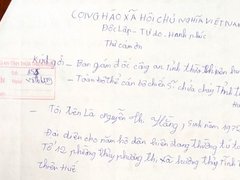 CỘNG HÀO XÃ HỘI CHỦ NGHĨA VIỆT NAM
Độc Lập - Tự do - Hạnh phúc
Kính gởi - Ban giám đốc công an tỉnh thừa thiên
- Toàn bộ thể cán bộ chiến sĩ chữa cháy Tỉnh
- Tôi tên Là nguyễn thị Hằng, Sinh năm 197
Đại diện cho năm hộ dân hiện đang thường trú
Tổ 12 phường thủy phương thị xã hương thủy Tỉnh
thiên Huế